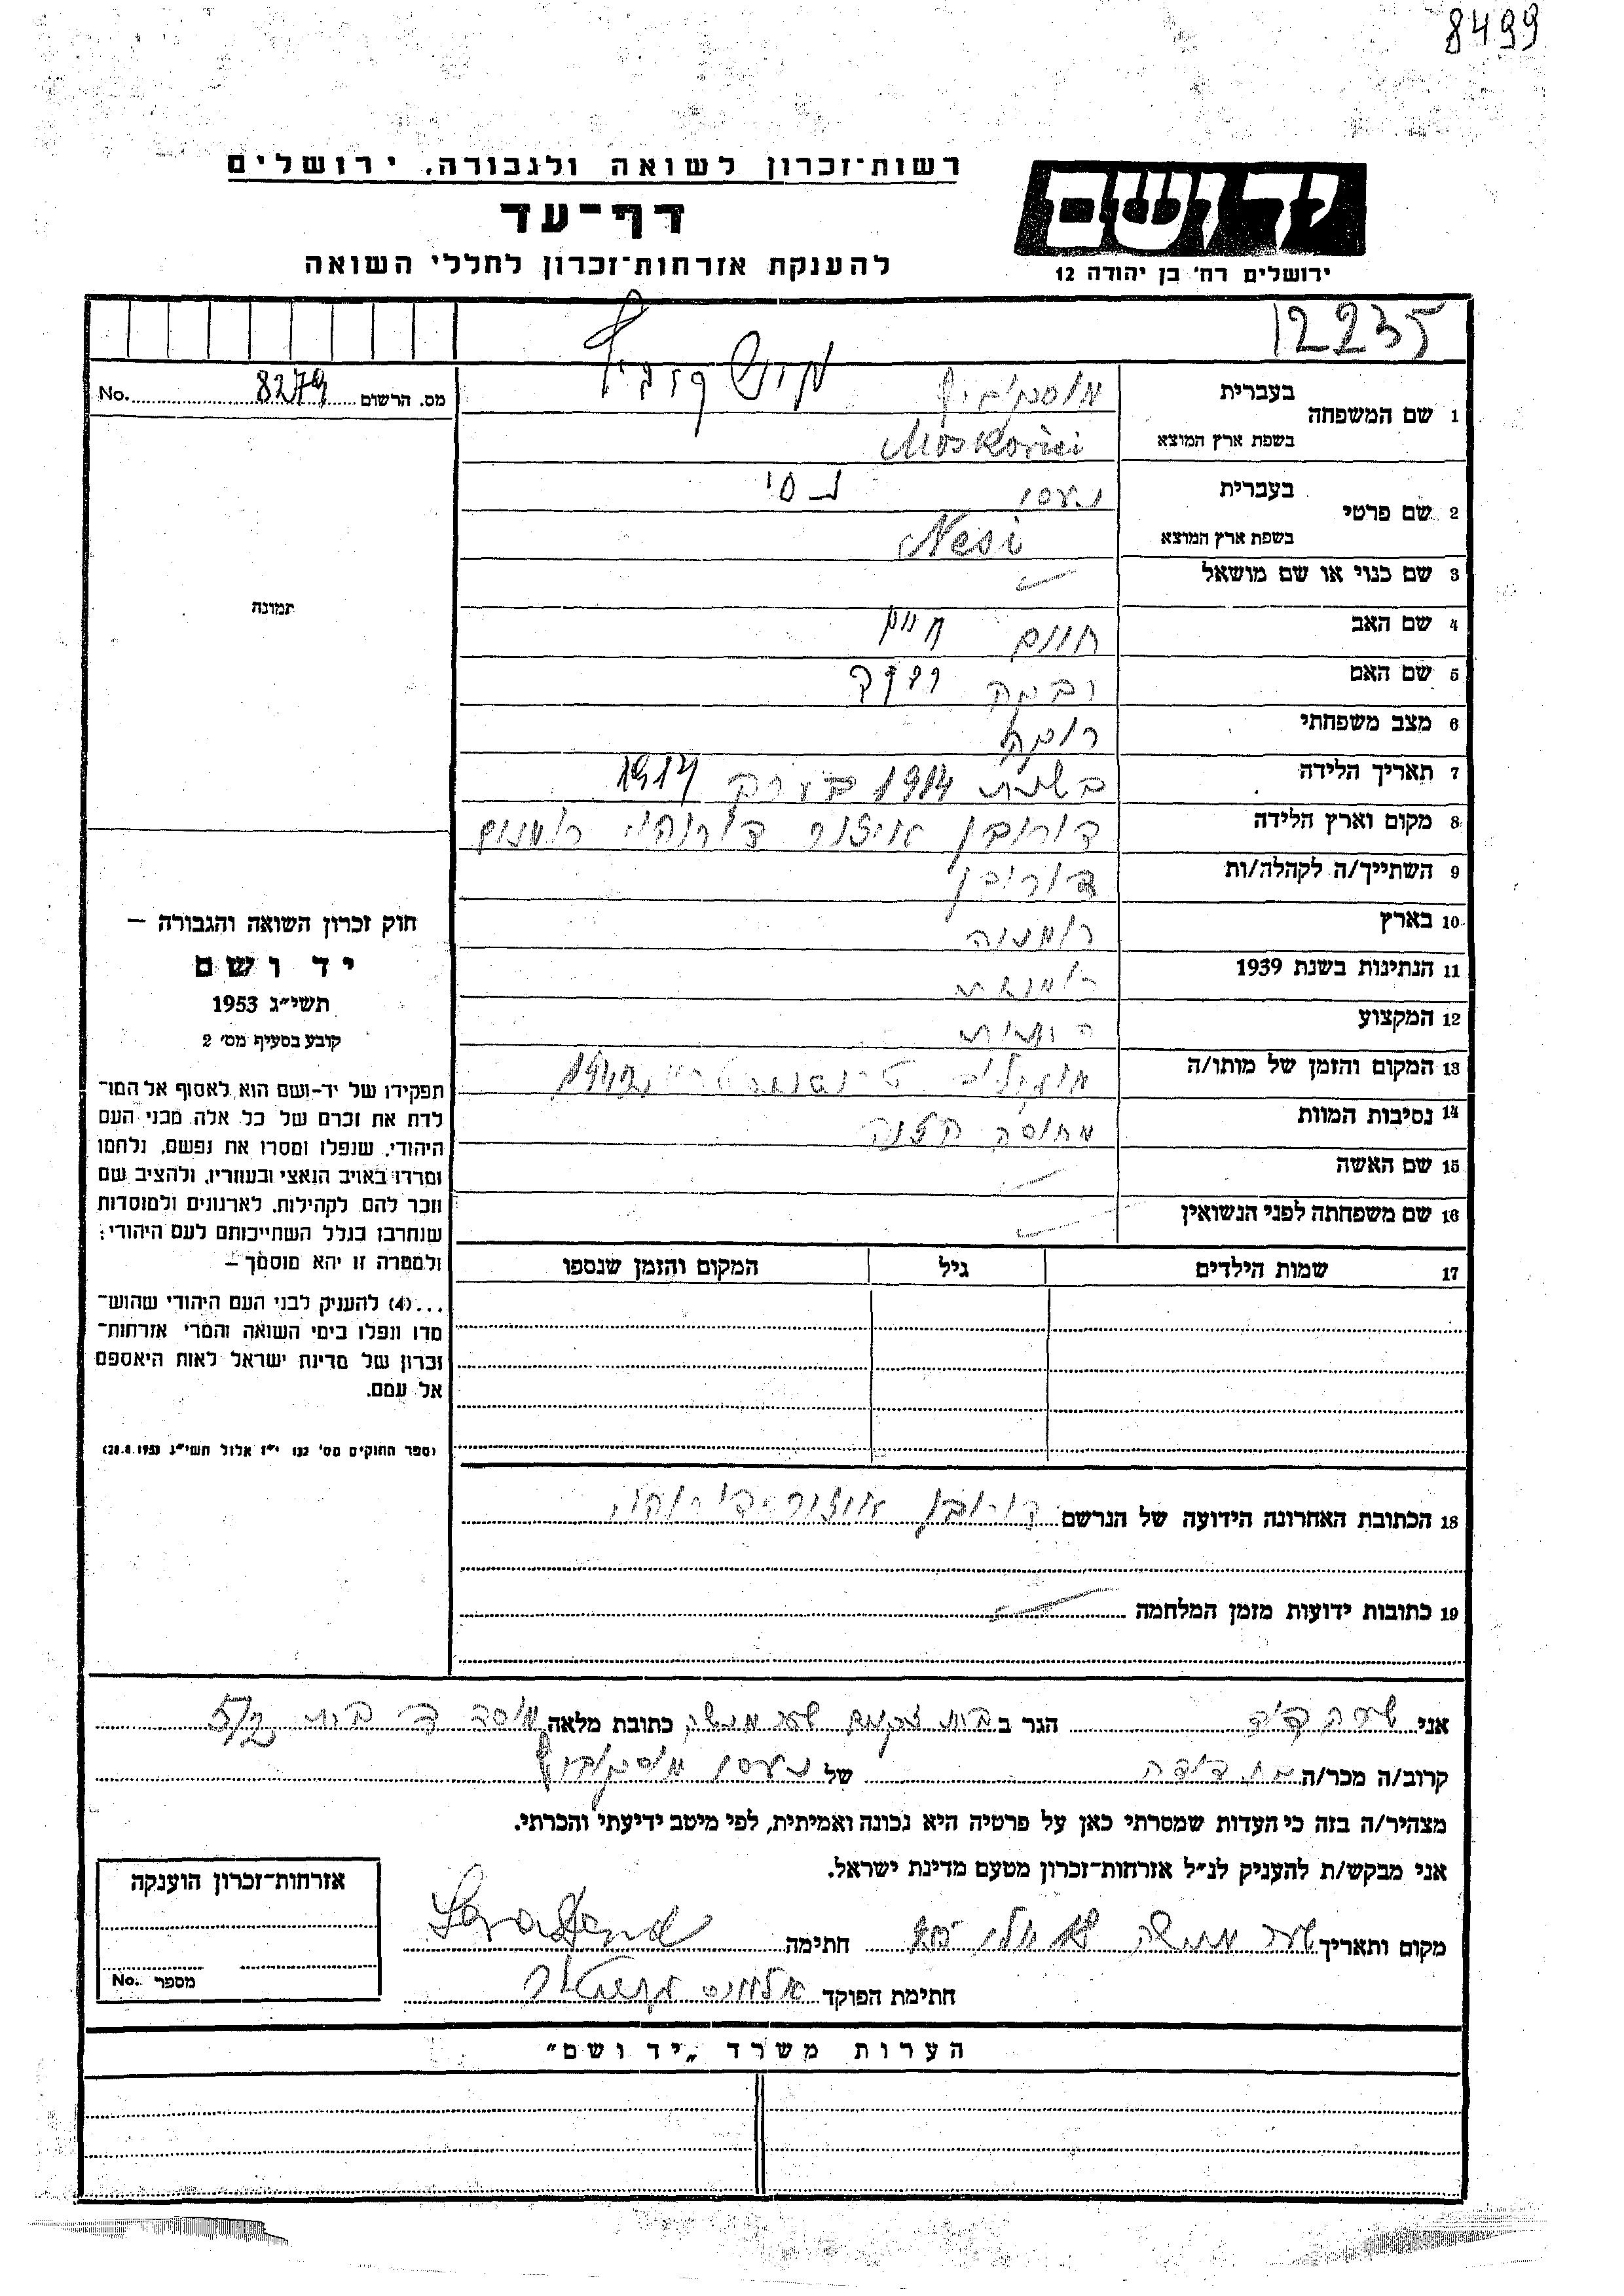 8499
רשות־זכרון לשואה ולגבורה, ירושלים
דף־עד
להענקת אזרחות־זכרון לחללי השואה
יד ושם
ירושלים רח' בן יהודה 12
12235
מס. הרשום 8279 No.
תמונה
חוק זכרון השואה והגבורה —
יד ושם
תשי״ג 1953
קובע בסעיף מס' 2
תפקידו של יד-ושם הוא לאסוף אל המו־
לדת את זכרם של כל אלה מבני העם
היהודי, שנפלו ומסרו את נפשם, נלחמו
ומרדו באויב הנאצי ובעוזריו, ולהציב שם
וזכר להם לקהילות, לארגונים ולמוסדות
שנחרבו בגלל השתייכותם לעם היהודי;
ולמטרה זו יהא מוסמך –
...(4) להעניק לבני העם היהודי שהוש־
מדו ונפלו בימי השואה והמרי אזרחות־
זכרון של מדינת ישראל לאות היאספם
אל עמם.
(ספר החוקים מס' 132 י״ז אלול תשי״ג 28.8.1953)
1 שם המשפחה בעברית מוסקוביץ
בשפת ארץ המוצא Moskovici
2 שם פרטי בעברית נעסי נסי
בשפת ארץ המוצא Nesi
3 שם כנוי או שם מושאל
4 שם האב חיים חיים
5 שם האם רבקה רבקה
6 מצב משפחתי רווקה
7 תאריך הלידה בשנת 1914 בערך 1914
8 מקום וארץ הלידה דורוהוי
9 השתייך/ה לקהלה/ות
10 בארץ רומניה
11 הנתינות בשנת 1939 רומנית
12 המקצוע
13 המקום והזמן של מותו/ה טרנסניסטריה 1942
14 נסיבות המוות
15 שם האשה
16 שם משפחתה לפני הנשואין
17 שמות הילדים גיל המקום והזמן שנספו
18 הכתובת האחרונה הידועה של הנרשם דורוהוי
19 כתובות ידועות מזמן המלחמה
אני שרה דוד הגר ב שער מנשה כתובת מלאה מוסד ד בית 5/2
קרוב/ה מכר/ה בת דודה של נעסי מוסקוביץ
מצהיר/ה בזה כי העדות שמסרתי כאן על פרטיה היא נכונה ואמיתית, לפי מיטב ידיעתי והכרתי.
אני מבקש/ת להעניק לנ״ל אזרחות־זכרון מטעם מדינת ישראל.
מקום ותאריך שער מנשה חתימה
חתימת הפוקד
אזרחות־זכרון הוענקה
מספר No.
הערות משרד „יד ושם״